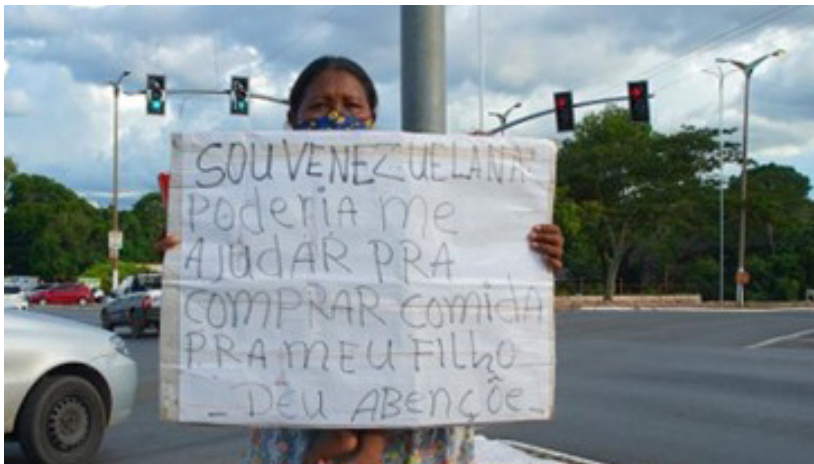 SOU VENEZUELANA
PoderiA me
AJUDAR PRA
COMPRAR comidA
PRA MEU FILHO
- DEU ABENÇÕE -